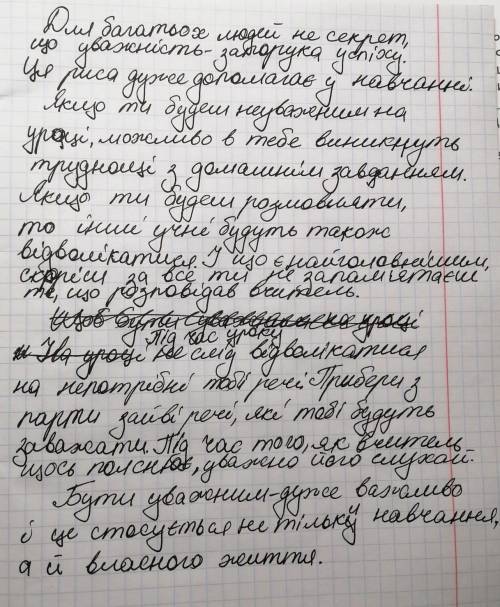 Для багатьох людей не секрет,
що уважність- запорука успіху.
Ця риса дуже допомагає у навчанні.
Якщо ти будеш неуважним на
уроці, можливо в тебе виникнуть
труднощі з домашнім завданням.
Якщо ти будеш розмовляти,
то інші учні будуть також
відволікатися. І що є найголовнішим,
скоріш за все ти не запам'ятаєш
те, що розповідав вчитель.
Щоб бути уважним на уроці
Під час уроку
На уроці не слід відволікатися
на непотрібні тобі речі. Прибери з
парти зайві речі, які тобі будуть
заважати. Під час того, як вчитель
щось пояснює, уважно його слухай.
Бути уважним-дуже важливо
і це стосується не тільку навчання,
а й власного життя.